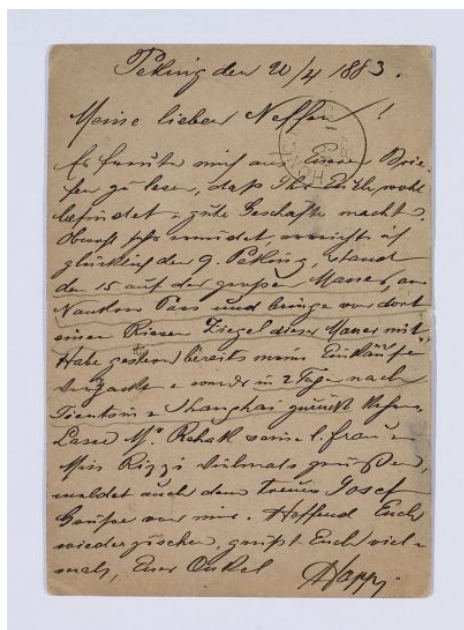 Peking den 20/4 1883.
Meine lieben Neffen!
Es freute mich aus Euren Brie-
fen zu lesen, daß Ihr Euch wohl
befindet & gute Geschäfte macht.
Obwohl sehr ermüdet, erreichte ich
glücklich den 9. Peking, stand
den 15 auf der großen Mauer, am
Nankow Pass und bringe von dort
einen Riesen Ziegel dieser Mauer mit.
Habe gestern bereits meine Einkäufe
verpackt & werde in 2 Tage nach
Tientsin & Shanghai zurück kehren.
Lasse Mr. Rehak seine l. Frau &
Miss Rizzi vielmals grüßen,
meldet auch dem treuen Josef
Grüße von mir. Hoffend Euch
wiederzusehen, grüßt Euch viel-
mals, Euer Onkel